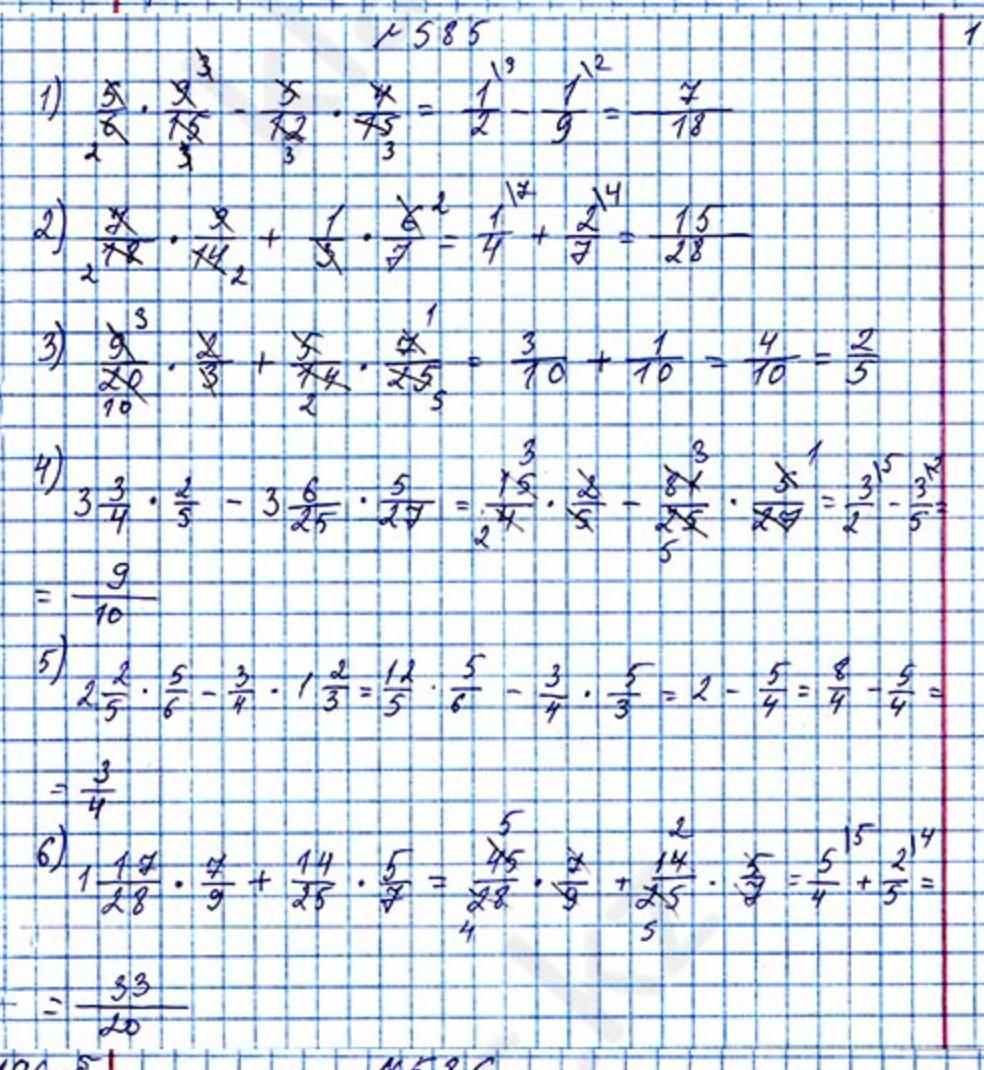 №585
1) 5/6 · 9/15 - 5/12 · 4/15 = 1/2 - 1/9 = 7/18
2) 7/18 · 9/14 + 1/3 · 6/7 = 1/4 + 2/7 = 15/28
3) 9/20 · 2/3 + 5/14 · 7/25 = 3/10 + 1/10 = 4/10 = 2/5
4) 3 3/4 · 2/5 - 3 6/25 · 5/27 = 15/4 · 2/5 - 81/25 · 5/27 = 3/2 - 3/5 =
= 9/10
5) 2 2/5 · 5/6 - 3/4 · 1 2/3 = 12/5 · 5/6 - 3/4 · 5/3 = 2 - 5/4 = 8/4 - 5/4 =
= 3/4
6) 1 17/28 · 7/9 + 14/25 · 5/7 = 45/28 · 7/9 + 14/25 · 5/7 = 5/4 + 2/5 =
= 33/20